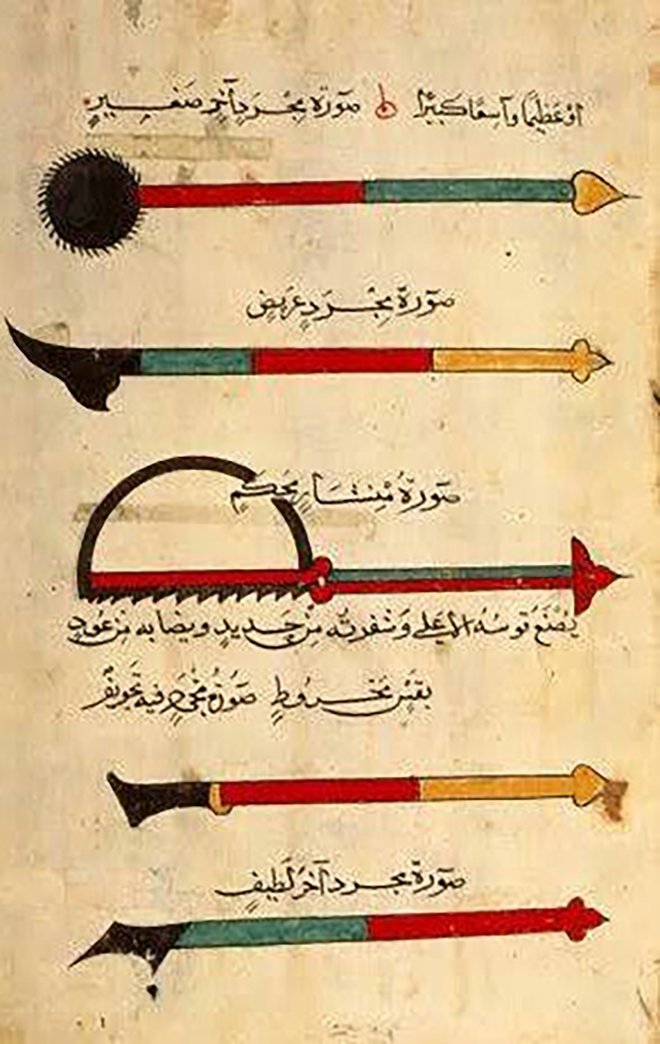 أو عظيمًا واسعًا كبيرًا ط صورة مجرد آخر صغير
صورة مجرد عريض
صورة منشار محكم
يصنع قوسه الأعلى وشفرته من حديد ونصابه من عود
بقس مخروط صورة مجرد فيه تجويف
صورة مجرد آخر لطيف